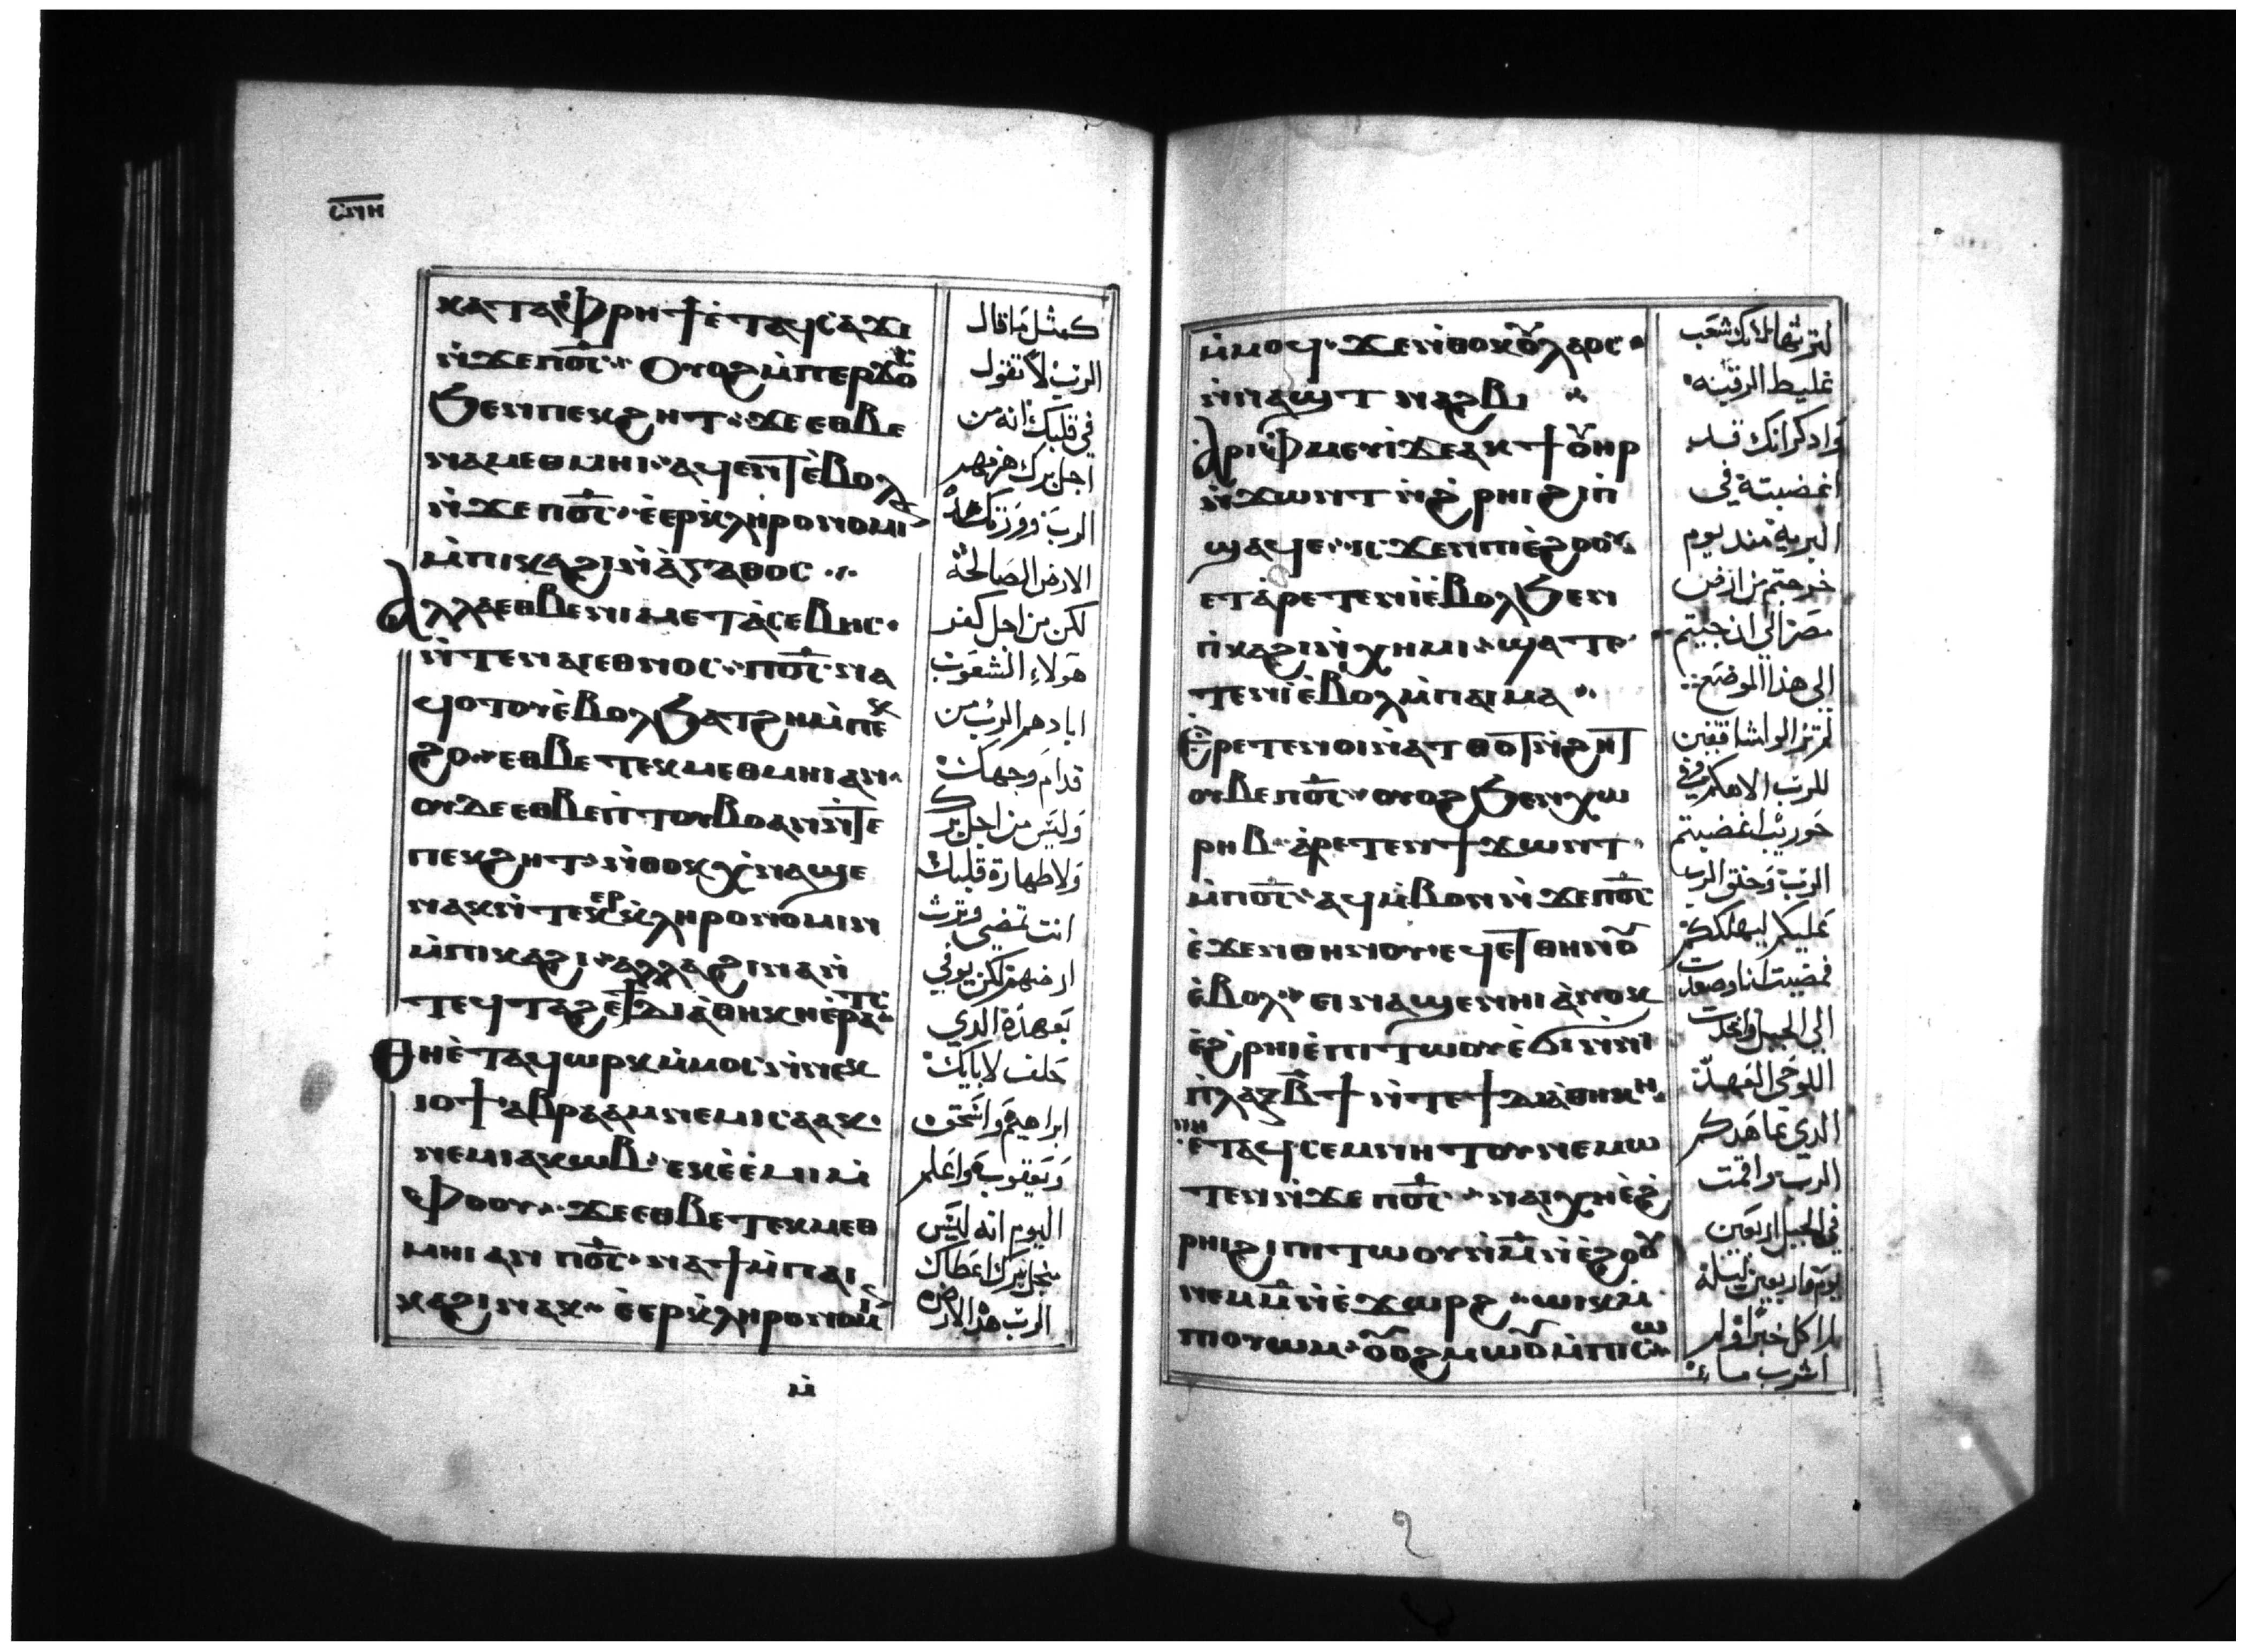 ⲥⲛⲏ
ⲕⲁⲧⲁⲫⲣⲏϯ ⲉⲧⲁϥⲥⲁϫⲓ
ⲛ̇ϫⲉⲡⲟ̅ⲥ̅ ⲟⲩⲟϩ ⲙ̇ⲡⲉⲣϫⲟ
ϧⲉⲛⲡⲉⲕϩⲏⲧ ϫⲉⲉⲑⲃⲉ
ⲛⲁⲙⲉⲑⲙⲏⲓ ⲁϥⲉⲛⲧ ⲉ̇ⲃⲟⲗ
ⲛ̇ϫⲉⲡⲟ̅ⲥ̅ ⲉ̇ⲉⲣⲕ̇ⲗⲏⲣⲟⲛⲟⲙⲓⲛ
ⲙ̇ⲡⲓⲕⲁϩⲓ ⲛ̇ⲁ̇ⲅⲁⲑⲟⲥ
ⲁⲗⲗⲁ ⲉⲑⲃⲉⲛⲓⲙⲉⲧⲁ̇ⲥⲉⲃⲏⲥ
ⲛ̇ⲧⲉⲛⲁⲓⲉⲑⲛⲟⲥ ⲡⲟ̅ⲥ̅ ⲛⲁ
ϥⲟⲧⲟⲩ ⲉ̇ⲃⲟⲗ ϧⲁⲧϩⲏ ⲙ̇ⲡⲉⲕ
ϩⲟ ⲉⲑⲃⲉ ⲧⲉⲕⲙⲉⲑⲙⲏⲓ ⲁⲛ
ⲟⲩⲇⲉ ⲉⲑⲃⲉⲡ̇ⲧⲟⲩⲃⲟ ⲁⲛ ⲛ̇ⲧⲉ
ⲡⲉⲕϩⲏⲧ ⲛ̇ⲑⲟⲕ ⲭ̇ⲛⲁϣⲉ
ⲛⲁⲕ ⲛ̇ⲧⲉⲕⲉⲣⲕ̇ⲗⲏⲣⲟⲛⲟⲙⲓⲛ
ⲙ̇ⲡⲓⲕⲁϩⲓ ⲁⲗⲗⲁ ϩⲓⲛⲁ ⲛ̇
ⲧⲉϥⲧⲁϩⲉϯⲇⲓⲁ̇ⲑⲏⲕⲏ ⲉ̇ⲣⲁⲧⲥ
ⲑⲏ ⲉ̇ⲧⲁϥⲱⲣⲕ ⲙ̇ⲙⲟⲥ ⲛ̇ⲛⲉⲕ
ⲓⲟϯ ⲁⲃⲣⲁⲁⲙ ⲛⲉⲙ ⲓⲥⲁⲁⲕ
ⲛⲉⲙ ⲓⲁⲕⲱⲃ ⲉⲕⲉ̇ⲉ̇ⲙⲓ ⲙ̇
ⲫⲟⲟⲩ ϫⲉ ⲉⲑⲃⲉ ⲧⲉⲕⲙⲉⲑ
ⲙⲏⲓ ⲁⲛ ⲡⲟ̅ⲥ̅ ⲛⲁϯ ⲙ̇ⲡⲁⲓ
ⲕⲁϩⲓ ⲛⲁⲕ ⲉ̇ⲉⲣⲕ̇ⲗⲏⲣⲟⲛⲟⲙⲓⲛ
ⲙ̇
كمثل ما قال
الرب لا تقول
في قلبك انه من
اجل برك هزمهم
الرب وورثك هذه
الارض الصالحة
لكن من اجل كفر
هولاء الشعوب
ابادهم الرب من
قدام وجهك
وليس من اجل برك
ولا طهارة قلبك
انت تمضي وترث
ارضهم لكن يوفي
بعهده الدي
حلف لابايك
ابراهيم واسحق
ويعقوب واعلم
اليوم انه ليس
منجل برك اعطاك
الرب هذه الارض
ⲙ̇ⲙⲟϥ ϫⲉⲛ̇ⲑⲟⲕ ⲟⲩⲗⲁⲟⲥ
ⲛ̇ⲛⲁϣⲧ ⲛⲁϩⲃⲓ
ⲁⲣⲓⲫ̇ⲙⲉⲩⲓ̇ ϫⲉ ⲁⲕϯ ⲟⲩⲏⲣ
ⲛ̇ϫⲱⲛⲧ ⲛ̇ϩ̇ⲣⲏⲓ ϩⲓⲡ̇
ϣⲁϥⲉ ⲓⲥϫⲉⲛ ⲡⲓⲉ̇ϩⲟⲟⲩ
ⲉⲧⲁ̇ⲣⲉⲧⲉⲛⲓ̇ ⲉ̇ⲃⲟⲗ ϧⲉⲛ
ⲡ̇ⲕⲁϩⲓ ⲛ̇ⲭⲏⲙⲓ ϣⲁⲧⲣ
ⲧⲉⲛⲓ̇ ⲉ̇ⲃⲟⲗ ⲙ̇ⲡⲁⲓⲙⲁ
ⲉ̇ⲣⲉⲧⲉⲛⲟⲓ ⲛ̇ⲁⲧⲑⲟⲧ ⲛ̇ϩⲏⲧ
ⲟⲩⲃⲉ ⲡⲟ̅ⲥ̅ ⲟⲩⲟϩ ϧⲉⲛ ⲭⲱ
ⲣⲏⲃ ⲁ̇ⲣⲉⲧⲉⲛϯϫⲱⲛⲧ
ⲙ̇ⲡⲟ̅ⲥ̅ ⲁϥⲙ̇ⲃⲟⲛ ⲛ̇ϫⲉⲡⲟ̅ⲥ̅
ⲉ̇ϫⲉⲛⲑⲏⲛⲟⲩ ⲉϥⲉⲧⲑⲏⲛⲟⲩ
ⲉ̇ⲃⲟⲗ ⲉⲓⲛⲁϣⲉⲛⲏⲓ ⲁ̇ⲛⲟⲕ
ⲉ̇ϩ̇ⲣⲏⲓ ⲉ̇ⲡⲓⲧⲱⲟⲩ ⲉ̇ϭⲓ ⲛ̇ϯ
ⲡ̇ⲗⲁⲝ ⲃ̅ϯ ⲛ̇ⲧⲉϯⲇⲓⲁ̇ⲑⲏⲕⲏ
ⲉ̇ⲧⲁϥⲥⲉⲙⲛⲏⲧⲟⲩ ⲛⲉⲙⲱ
ⲧⲉⲛ ⲛ̇ϫⲉ ⲡⲟ̅ⲥ̅ ⲛⲁⲓⲭⲏ ⲉ̇ϩ̇
ⲣⲏⲓ ϩⲓⲡⲓⲧⲱⲟⲩ ⲛ̇ⲙ̅ ⲛ̇ⲉ̇ϩⲟⲟⲩ
ⲛⲉⲙ ⲙ̅ ⲛ̇ⲉ̇ϫⲱⲣϩ ⲱⲓⲕ ⲙ̇
ⲡⲟⲩⲱⲙ ⲟⲩⲟϩ ⲙⲱⲟⲩ ⲙ̇ⲡⲓⲥⲱ
غليط الرقبه
وادكر انك قد
اغضبته في
البرية مند يوم
خرجتم من ارض
مصر الي ان جيتم
الى هذا الموضع
لم تزالوا شاقفين
حوريب اغضبتم
الرب وحنق الرب
عليكم ليهلككم
فمضيت انا وصعدت
الي الجبل واخدت
اللوحي العهد
الدي عاهدكم
الرب واقمت
في الجبل اربعين
يوم واربعين ليلة
لم اكل خبزا ولم
اشرب ماء